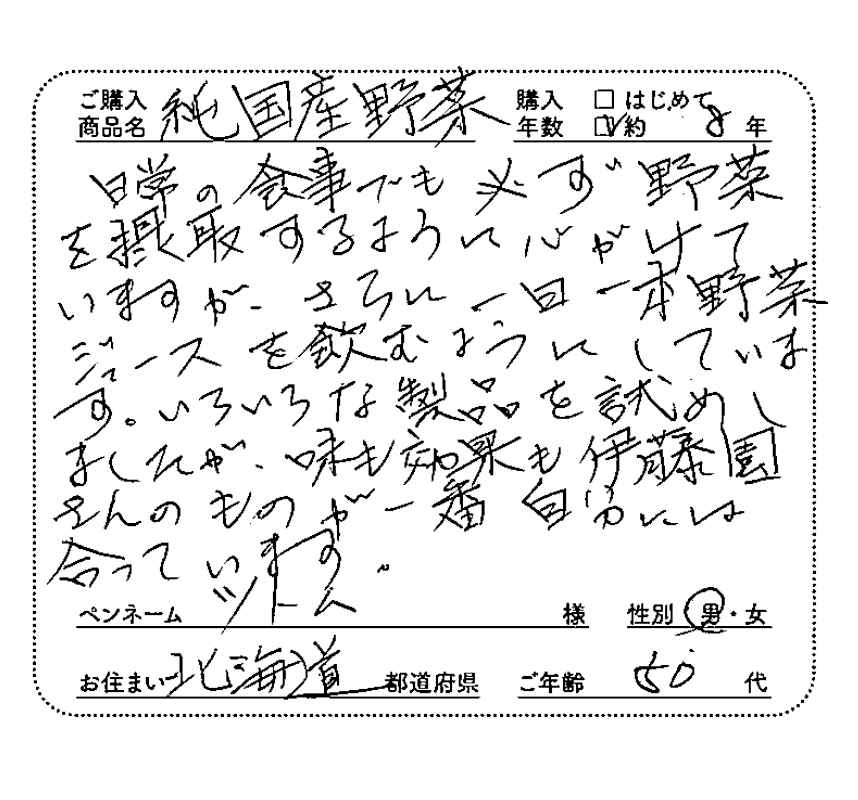 ご購入 商品名 純国産野菜 購入 年数 □ はじめて ☑ 約 8 年
日常の食事でも必ず野菜
を摂取するように心がけて
いますが、さらに一日一本野菜
ジュースを飲むようにしていま
す。いろいろな製品を試めし
ましたが、味も効果も伊藤園
さんのものが一番自分には
合っています。
ペンネーム ツトム 様 性別 男・女
お住まい 北海道 都道府県 ご年齢 50 代